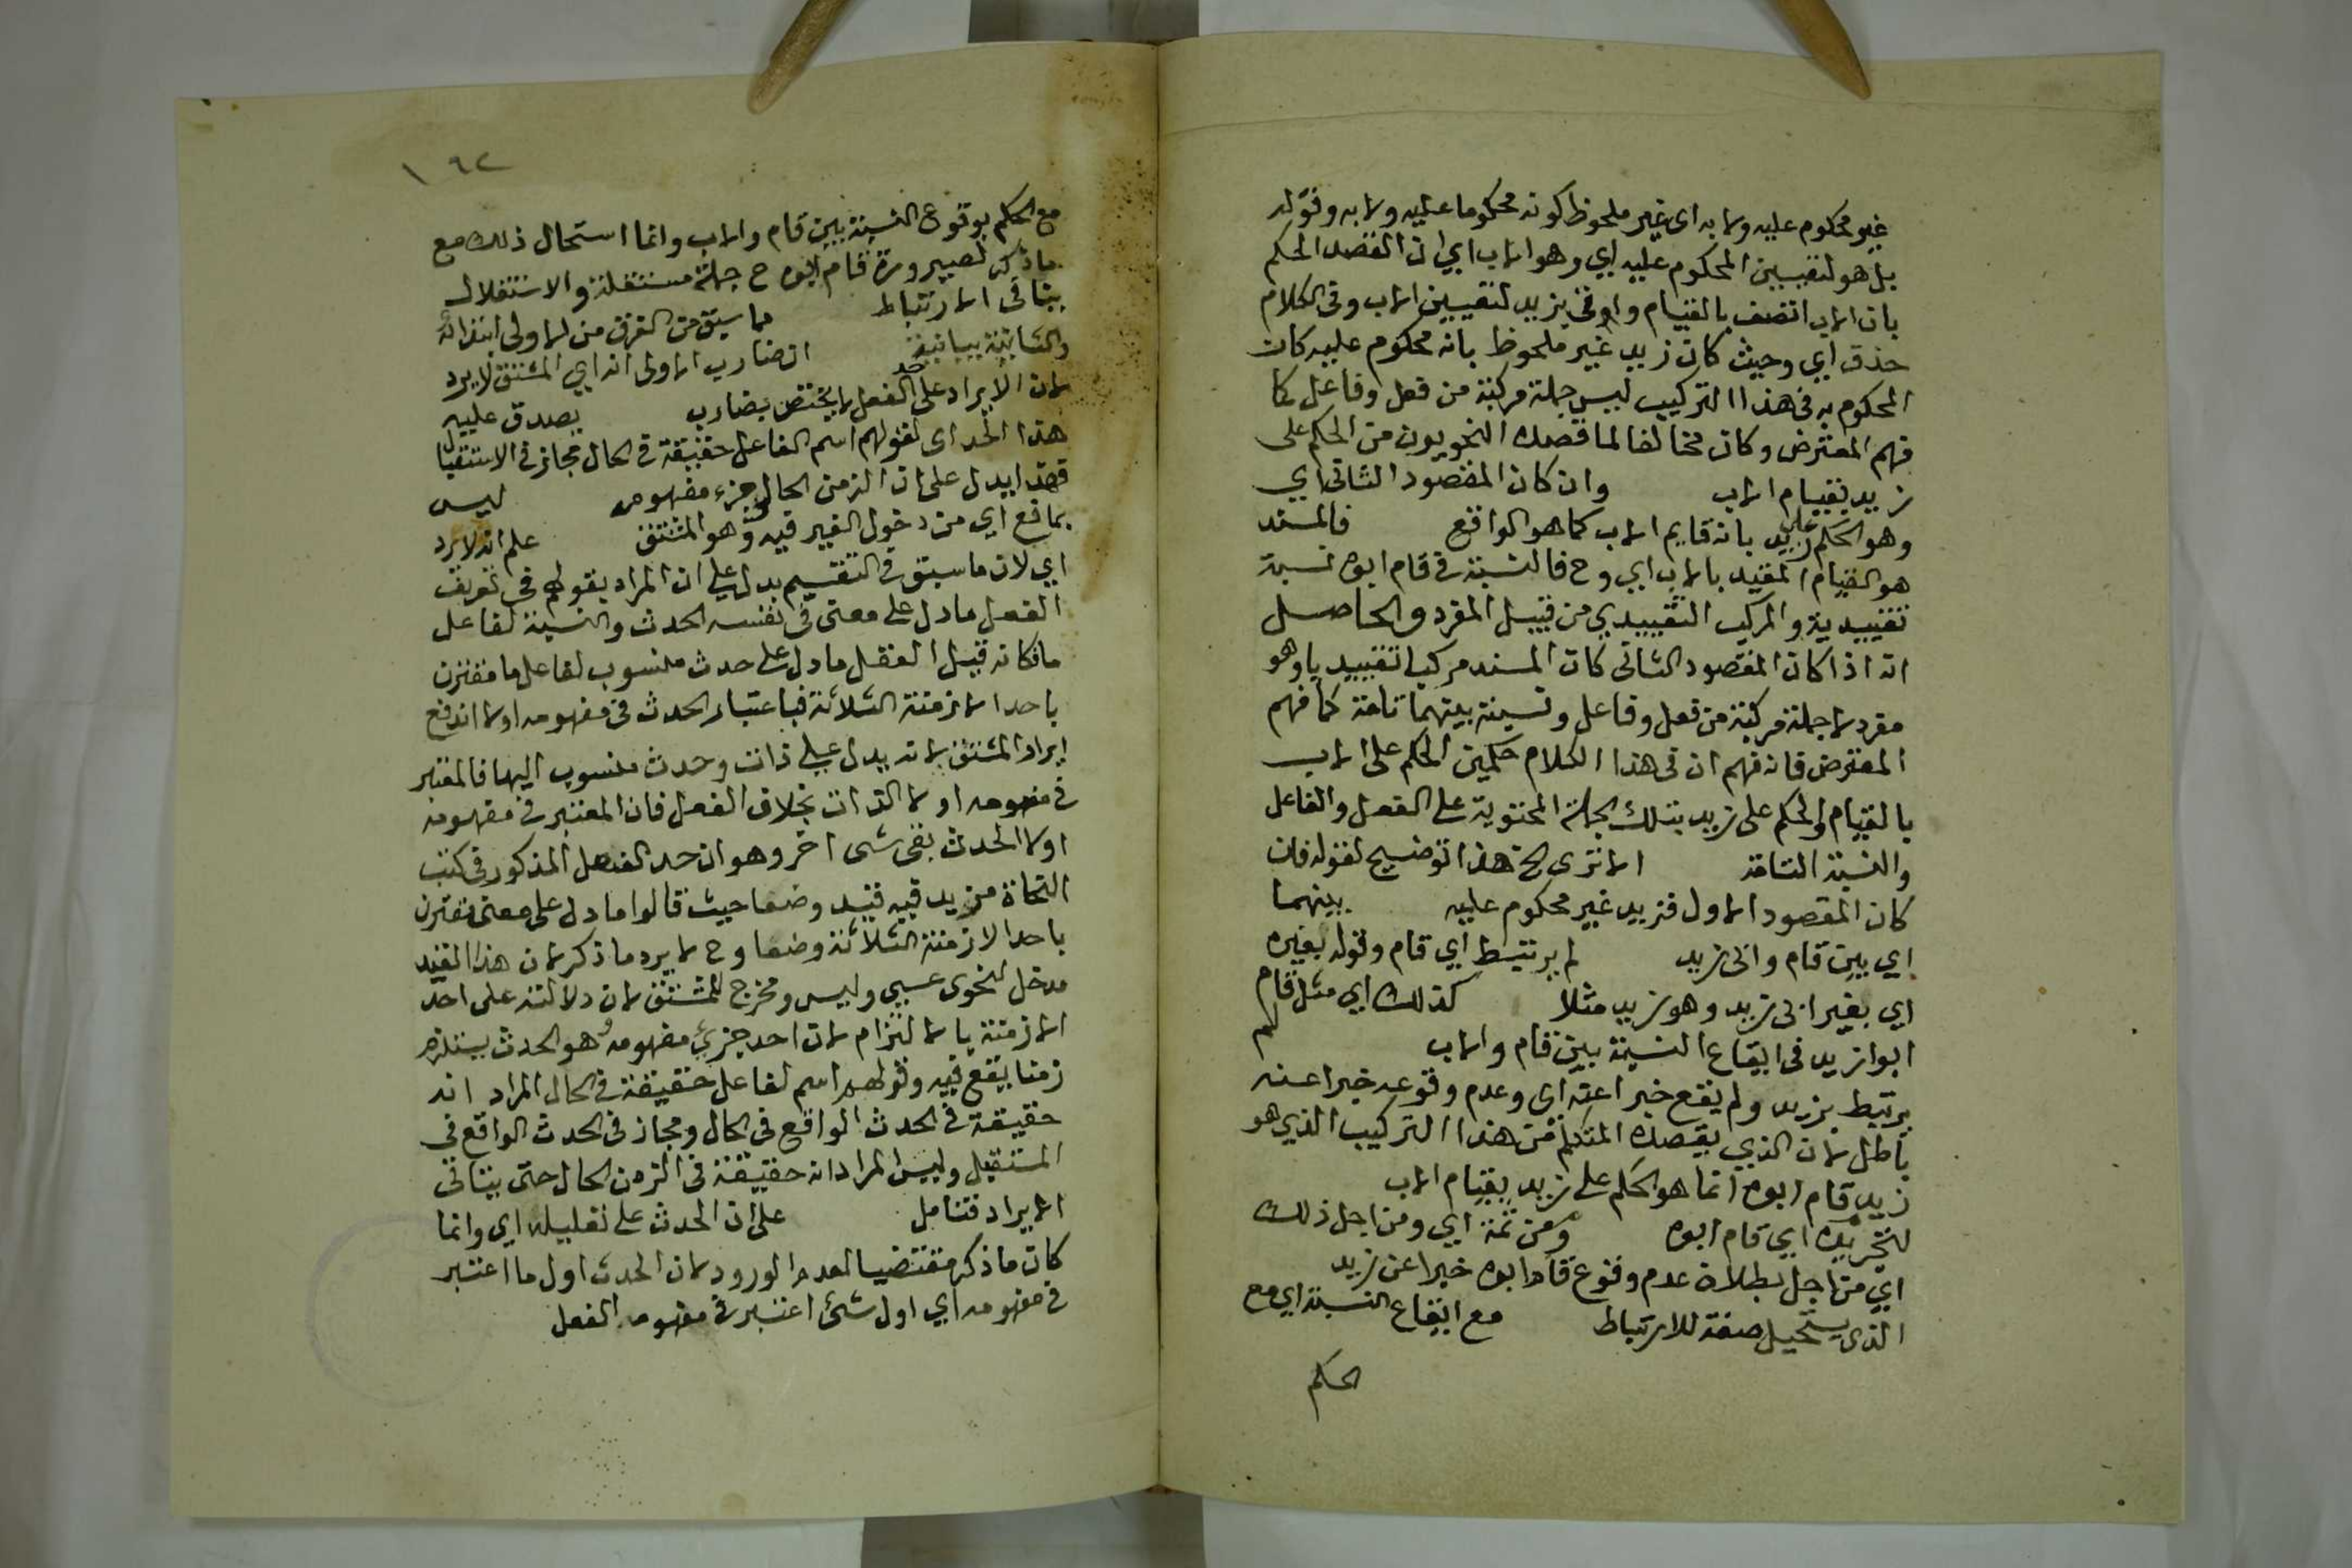 غير محكوم عليه ولا به اى غير ملحوظ كونه محكوما عليه ولا به وقوله
بل هو لتعيين المحكوم عليه اي وهو الاب اي ان القصد الحكم
بان الاب اتصف بالقيام واوقى بزيد لتعيين الاب وفى الكلام
حذف اي وحيث كان زيد غير ملحوظ بانه محكوم عليه كان
المحكوم به فى هذا التركيب ليس جملة مركبة من فعل وفاعل كما
فهم المعترض وكان مخالفا لما قصده النحويون من الحكم على
زيد بقيام الاب وان كان المقصود الثانى اي
وهو الحكم على زيد بانه قايم الاب كما هو الواقع فالمسند
هو القيام المقيد بالاب اي وح فالنسبة فى قام ابوه نسبة
تقييدية والمركب التقييدي من قبيل المفرد والحاصل
انه اذا كان المقصود الثانى كان المسند مركبا تقييديا وهو
مفرد لا جملة مركبة من فعل وفاعل ونسبة بينهما تامة كما فهم
المعترض فانه فهم ان فى هذا الكلام حكمين الحكم على الاب
بالقيام والحكم على زيد بتلك الجملة المحتوية على الفعل والفاعل
والنسبة التامة الا ترى الخ هذا توضيح لقوله فان
كان المقصود الاول فزيد غير محكوم عليه بينهما
اي بين قام وابى زيد لم يرتبط اي قام وقوله بغيره
اي بغير ابى زيد وهو زيد مثلا كذلك اي مثل قام
ابوا زيد فى ايقاع النسبة بين قام والاب لم
يرتبط بزيد ولم يقع خبرا عنه اى وعدم وقوعه خبرا عنه
باطل لان الذي يقصده المتكلم من هذا التركيب الذي هو
زيد قام ابوه انما هو الحكم على زيد بقيام الاب
لتجريده اي قام ابوه ومن ثمة اي ومن اجل ذلك
اي من اجل بطلان عدم وقوع قام ابوه خبرا عن زيد
الذى يستحيل صفة للارتباط مع ايقاع النسبة اي مع
الحكم
١٩٢
مع الحكم بوقوع النسبة بين قام والاب وانما استحال ذلك مع
ما ذكر لصيرورة قام ابوه ح جملة مستقلة والاستقلال
ينافى الارتباط مما سبق من الفرق من الاولى ابتدائة
والثانية بيانية ان ضارب الاولى انه اي المشتق لا يرد
لان الايراد على حد الفعل لا يختص بضارب يصدق عليه
هذا الحد اى لقولهم اسم الفاعل حقيقة فى الحال مجاز فى الاستقبال
فهذا يدل على ان الزمن الحال جزء مفهومه ليس
بمانع اي من دخول الغير فيه وهو المشتق علم انه لا يرد
اي لان ما سبق فى التقسيم يدل على ان المراد بقولهم فى تعريف
الفعل ما دل على معنى فى نفسه الحدث والنسبة لفاعل
ما فكانه قيل الفعل ما دل على حدث منسوب لفاعل ما مقترن
باحد الازمنة الثلاثة فباعتبار الحدث فى مفهومه اولا اندفع
ايراد المشتق لانه يدل على ذات وحدث منسوب اليها فالمعتبر
فى مفهومه اولا الذات بخلاف الفعل فان المعتبر فى مفهومه
اولا الحدث بقى شى اخر وهو ان حد الفعل المذكور فى كتب
النحاة مزيد فيه قيد وضعا حيث قالوا ما دل على معنى مقترن
باحد الازمنة الثلاثة وضعا وح لا يرد ما ذكر لان هذا القيد
مدخل لنحوى عسى وليس ومخرج للمشتق لان دلالته على احد
الازمنة بالالتزام لان احد جزئي مفهومه وهو الحدث يستلزم
زمنا يقع فيه وقولهم اسم الفاعل حقيقة فى الحال المراد انه
حقيقة فى الحدث الواقع فى الحال ومجاز فى الحدث الواقع فى
المستقبل وليس المراد انه حقيقة فى الزمن الحال حتى يتاتى
الايراد فتامل على ان الحدث على تعليله اي وانما
كان ما ذكر مقتضيا لعدم الورود لان الحدث اول ما اعتبر
فى مفهومه اي اول شئ اعتبر فى مفهوم الفعل